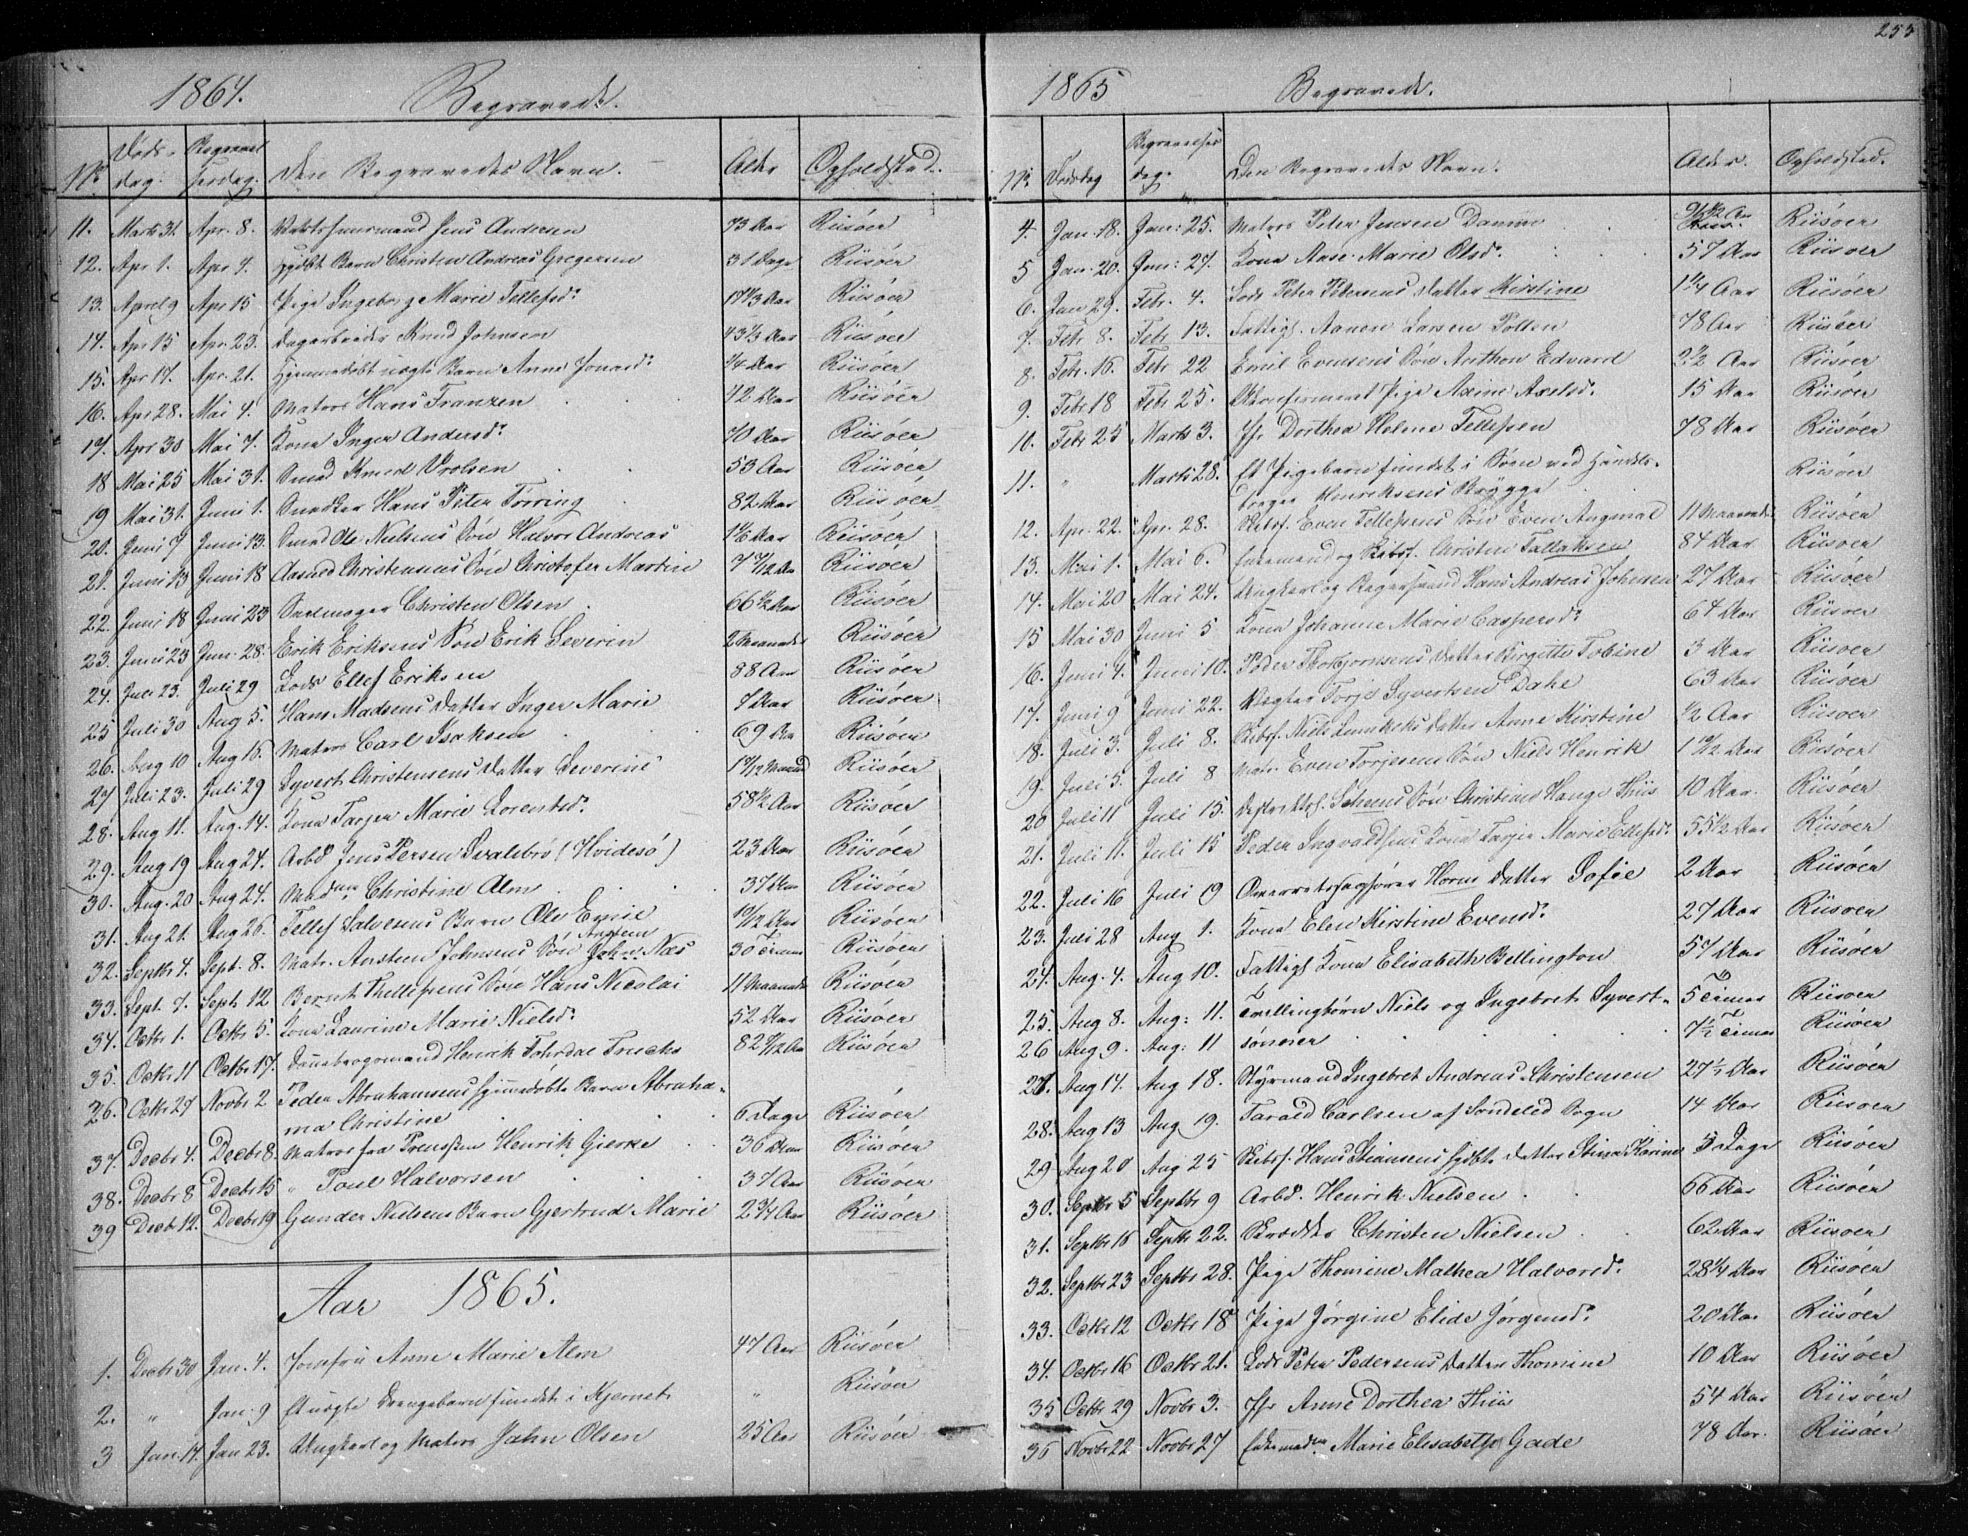 253
1864.
Begravede.
No Døds-dag. Begravelsesdag. Den Begravedes Navn. Alder Opholdsted.
11. Marts 31. Apr. 8. Jens Andersen 73 Aar Riisøer
12. Apr 1. Apr. 4. Barn Christen Andreas Gregersen 31 Dage Riisøer
13. April 9 Apr 15 Pige Ingeborg Marie Tellefsd: 17 1/3 Aar Riisøer
14. Apr 15 Apr. 23. Dagarbeider Knud Johnsen 43 1/3 Aar Riisøer
15. Apr 17. Apr. 21. Hjemmedøbt uægte Barn Anne Jonasd: 1/4 Aar Riisøer
16. Apr 28. Mai 4. Matros Hans Franzen 42 Aar Riisøer
17. Apr 30 Mai 7. Kone Inger Andersd: 70 Aar Riisøer
18 Mai 25 Mai 31. Smed Knud Vrolsen 53 Aar Riisøer
19 Mai 31. Juni 1. Snedker Hans Peter Tørring 82 Aar Riisøer
20. Juni 7 Juni 13. Smed Ole Nielsens Søn Halvor Andreas 1 1/6 Aar Riisøer
21. Juni 13 Juni 18 Aasmd Christensens Søn Christofer Martin 7 Aar Riisøer
22. Juni 18 Juni 23 Christen Olsen 66 1/2 Aar Riisøer
23. Juni 23 Jun. 28. Erik Eriksens Søn Erik Severin 2 Maaneder Riisøer
24. Juli 23. Juli 29 Lods Ellef Eriksen 88 Aar Riisøer
25 Juli 30 Aug 5. Hans Madsens Datter Inger Marie 7 Aar Riisøer
26. Aug 10 Aug 15. Matros Carl Isaksen 69 Aar Riisøer
27 Juli 23. Juli 29 Syvert Christensens Datter Severine Riisøer
28. Aug 11. Aug. 14. Kone Tarjer Marie Lorentsd: 58 1/2 Aar Riisøer
29. Aug 19 Aug 24. Arbd. Jens Persen Svalebrø (Hvidesø) 23 Aar Riisøer
30. Aug. 20 Aug 24. Madam Christine Alm 37 Aar Riisøer
31. Aug 21. Aug 26. Tellef Salvesens Barn Ole Emil 10/12 Aar Riisøer
32. Septbr 4. Sept. 8. Matr. Ansteen Johnsens Søn Ansteen John Næs 30 Timer Riisøer
33. Sept. 7. Sept. 12 Bernt Thellefsens Søn Hans Nicolai 11 Maaneder Riisøer
34. Octbr 1. Octbr 5. Kone Laurine Marie Nielsd: 52 Aar Riisøer
35. Octbr 11 Octbr 17. Dannebrogsmand Henrik Fuchs 82 Aar Riisøer
26. Octbr 27 Novbr 2 Peder Abrahamsens hjemmedøbte Barn Abraha-
ma Christine 6 Dage Riisøer
37. Decbr 4. Decbr 8. Matros fra Preussen Henrik Gierke 36 Aar Riisøer
38. Decbr 8 Decbr 15 " Poul Halvorsen 37 Aar Riisøer
39 Decbr 12. Decbr 19 Gunder Nielsens Barn Gjertrud Marie 2 3/4 Aar Riisøer
Aar 1865.
1. Decbr 30 Jan. 4. Jomfru Anne Marie Alm 47 Aar Riisøer
2. " Jan. 9 Et uægte Drengebarn fundet i Kjernet " Riisøer
3 Jan. 17. Jan 23. Ungkarl og Matros John Olsen 25 Aar Riisøer
1865
Begravede.
No Dødsdag Begravelsesdag. Den Begravedes Navn. Alder. Opholdsted.
4. Jan. 18. Jan: 25. Matros Peter Jensen Damm Riisøer
5 Jan. 20. Jan: 27. Kone Aase Marie Olsd: 57 Aar Riisøer
6. Jan 29. Febr. 4. Lods Peter Pedersens Datter Kirstine 1 1/4 Aar Riisøer
7. Febr. 8. Febr 13. Fattigl. Aanen Larsen Polten 78 Aar Riisøer
8. Febr. 16. Febr 22 Emil Evensens Søn Anthon Edvard 2 1/2 Aar Riisøer
9. Febr 18 Febr 25. Pige Axine Axelsd: 15 Aar Riisøer
10. Febr 25 Marts 3. Jfr Dorthea Helene Tellefsen 78 Aar Riisøer
11. " Marts 28. Et Pigebarn fundet i Søen ved Handels-
borger Henriksens Brygge Riisøer
12. Apr. 22. Apr. 28. Skibsf. Even Tellefsens Søn Even Angmal 11 Maaneder Riisøer
13. Mai 1. Mai 6. Enkemand og Skibsf. Christen Tallaksen 84 Aar Riisøer
14. Mai 20 Mai 24. Ungkarl og Hans Andreas Johnsen 27 Aar Riisøer
15 Mai 30 Juni 5 Kone Johanne Marie Caspersd: 64 Aar Riisøer
16. Juni 4. Juni 10. Peder Thorbjørnsens Datter Birgitte Tobine 3 Aar Riisøer
17. Juni 9 Juni 22. Vægter Torje Syvertsen Dahl 63 Aar Riisøer
18. Juli 3. Juli 8. Skibsf. Niels Datter Anne Kirstine 1/2 Aar Riisøer
19. Juli 5. Juli 8 Matr. Even Torjesens Søn Niels Henrik 1 Aar Riisøer
20 Juli 11 Juli 15. Søn Christian Hauge Thiis 10 Aar Riisøer
21. Juli 11. Juli 15 Peder Ingvaldsens Kone Tarjer Marie Ellefsd: 55 1/2 Aar Riisøer
22. Juli 16 Juli 19 Overretssagfører Horns Datter Sofie 2 Aar Riisøer
23. Juli 28 Aug 1. Kone Elen Kirstine Evensd: 27 Aar Riisøer
24. Aug. 4. Aug 10. Fattigl. Kone Elisabeth Bellington 57 Aar Riisøer
25. Aug 8. Aug: 11. Tvillingbørn Niels og Ingebret Syvert- 5 Timer Riisøer
26 Aug 9. Aug: 11 sønner 7 1/2 Timer Riisøer
27. Aug 14. Aug 18. Styrmand Ingebret Andreas Christensen 27 Aar Riisøer
28. Aug 13 Aug 19. Tarald Carlsen af Søndeled Sogn 14 Aar Riisøer
29 Aug 20 Aug 25 Skibsf. Hans Stiansens Datter Stina Karine Dage Riisøer
30. Septbr 5 Septbr 9 Arbd. Henrik Nielsen 66 Aar Riisøer
31. Septbr 16 Septbr 22. Skrædder Christen Nielsen 62 Aar Riisøer
32. Septbr 23 Septbr 28. Pige Thomine Mathea Halvorsd: 28 1/4 Aar Riisøer
33. Octbr 12 Octbr 18 Pige Jørgine Elide Jørgensd: 20 Aar Riisøer
34. Octbr 16 Octbr 21. Lods Peter Pedersens Datter Thomine 10 Aar Riisøer
35 Octbr 29 Novbr 3. Jfr Anne Dorthea Thiis 54 Aar Riisøer
36 Novbr 22 Novbr 27 Enkemadm. Marie Elisabeth Gade 78 Aar. Riisøer